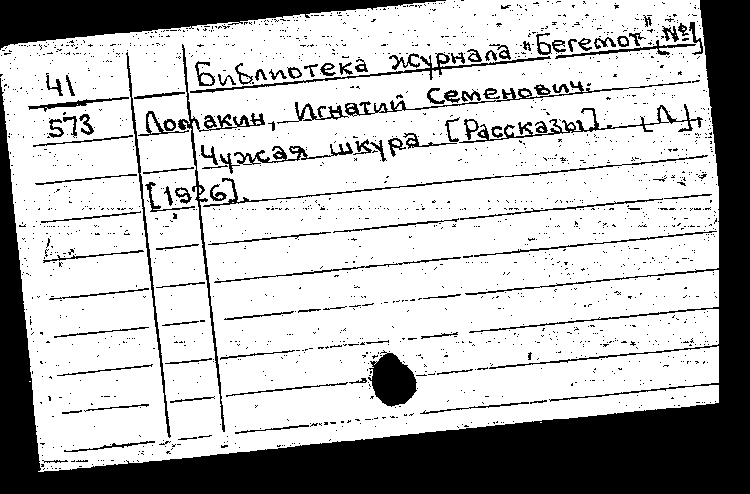 Библиотека журнала "Бегемот" [№1]
41
573
Ломакин, Игнатий Семенович.
Чужая шкура. [Рассказы]. [Л],
[1926].